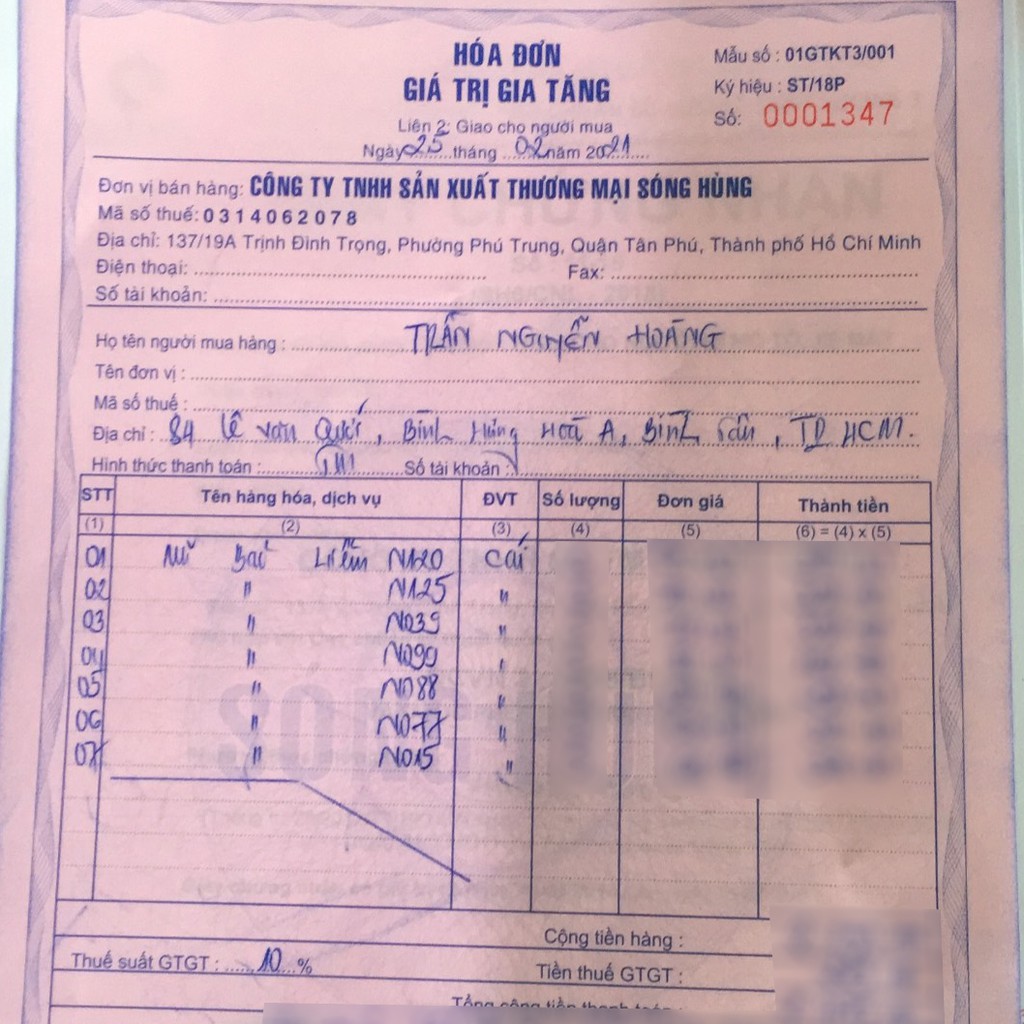 HÓA ĐƠN
GIÁ TRỊ GIA TĂNG
Liên 2: Giao cho người mua
Ngày 25 tháng 02 năm 2021
Mẫu số : 01GTKT3/001
Ký hiệu : ST/18P
Số: 0001347
Đơn vị bán hàng: CÔNG TY TNHH SẢN XUẤT THƯƠNG MẠI SÓNG HÙNG
Mã số thuế: 0314062078
Địa chỉ: 137/19A Trịnh Đình Trọng, Phường Phú Trung, Quận Tân Phú, Thành phố Hồ Chí Minh
Điện thoại: Fax:
Số tài khoản:
Họ tên người mua hàng : TRẦN NGUYỄN HOÀNG
Tên đơn vị :
Mã số thuế :
Địa chỉ : 84 Lê Văn Quới, Bình Hưng Hoà A, Bình Tân, TP HCM.
Hình thức thanh toán : TM Số tài khoản :
STT Tên hàng hóa, dịch vụ ĐVT Số lượng Đơn giá Thành tiền
(1) (2) (3) (4) (5) (6) = (4) x (5)
01 Mũ Bảo Hiểm N120 cái
02 " N125 "
03 " N039 "
04 " N090 "
05 " N088 "
06 " N077 "
07 " N015 "
Cộng tiền hàng :
Thuế suất GTGT : 10 % Tiền thuế GTGT :
Tổng cộng tiền thanh toán :